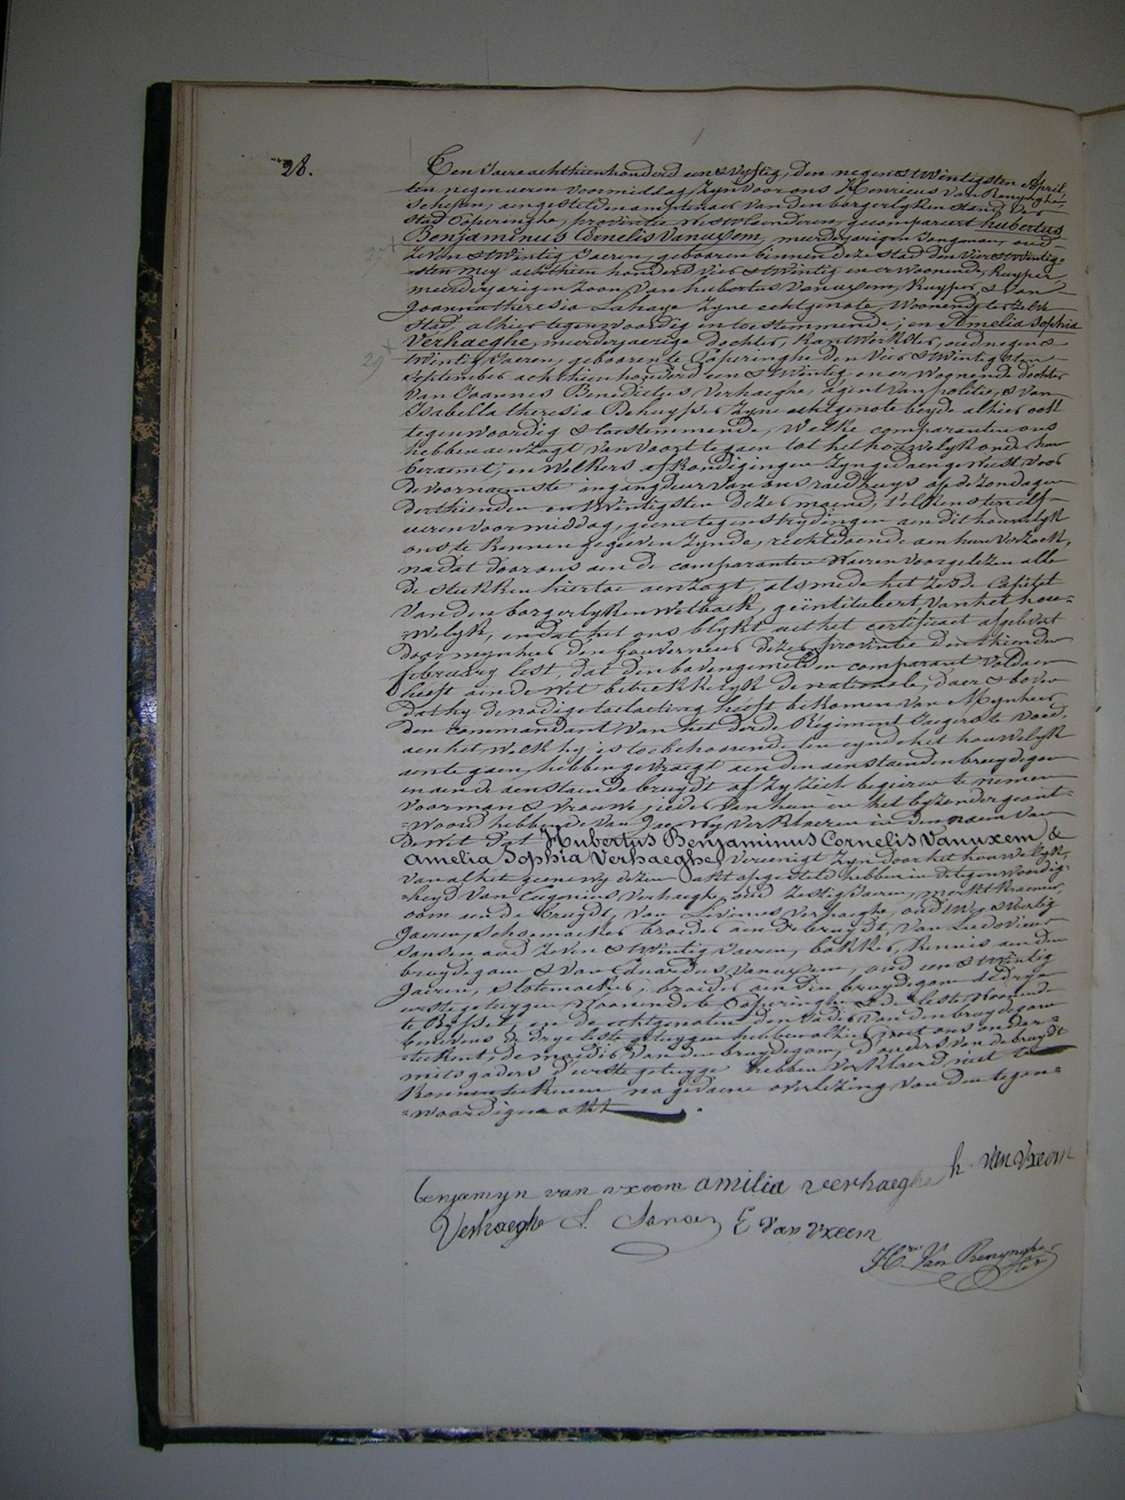 28.
Ten Jaere achthienhonderd een & vyftig, den negen & twintigsten April
ten negen ueren voormiddag, zyn voor ons Henricus Van Renynghe,
Schepen, aengestelden amptenaer van den borgerlyken stand der
stad Poperinghe, provincie Westvlaenderen, gecompareert hubertus
Benjaminus Cornelis Vanuxem, meerderjarigen Jongman, oud
27 zeven & twintig Jaeren, gebooren binnen deze stad den vier & twintig=
sten mey achthien honderd vier & twintig en er woonende, Kuyper,
meerderjarigen zoon van hubertus Vanuxem, Kuyper, & van
Joanna theresia Lahaye zyne echtgenote, woonende ter zelve
stad, alhier tegenwoordig en toestemmende; en Amelia Sophia
Verhaeghe, meerderjaerige dochter, Kantwerkster, oud negen &
29 twintig Jaeren, geboren te Poperinghe den vier & twintigsten
september achthien honderd een & twintig en er woonende, dochter
van Joannes Benedictus Verhaeghe, agent van politie, & van
Isabella theresia Behuyser zyne echtgenote beyde alhier ook
tegenwoordig & toestemmende, Welke comparanten ons
hebben aenzogt van voort te gaen tot het houwelyk onder hun
beraemt, en welkers afkondigingen zyn gedaen geweest voor
de voornaemste ingangdeur van ons raedhuys op de zondagen
derthienden en twintigsten dezer maend, t'elkens ten elf
ueren voormiddag, geene tegenstrydingen aen dit houwelyk
ons te kennen gegeven zynde, rechtdoende aen hun verzoek,
nadat door ons aen de comparanten waeren voorgelezen alle
de stukken hiertoe aenzogt, alsmede het zesde Capittel
van den borgerlyken Wetboek, geïntituleert, van het hou=
=welyk, en dat het ons blykt uit het certificaet afgelevert
door mynheer den gouverneur dezer provintie den thienden
february lest, dat den bovengemelden comparant voldaen
heeft aen de wet betrekkelyk de nationale, daer & boven
dat hy de nodige toelating heeft bekomen van Mynheer
den Commandant van het derde Regiment Jagers te voet,
aen het welk hy is toebehoorende ten eynde het houwelyk
aen te gaen, hebben gevraegt aen den aenstaenden bruydegom
en aen de aenstaende bruydt of zy zich begeiren te nemen
voor man & vrouwe, jeder van hun in het byzonder geant=
=woord hebbende van Jae, Wy verklaeren in den naem van
de Wet dat Hubertus Benjaminus Cornelis Vanuxem &
Amelia Sophia Verhaeghe, vereenigt zyn door het houwelyk,
van al het geene wy dezen akt opgesteld hebben in de tegenwoordig=
=heyd van Verhaeghe, oud zestig Jaeren, merktkraemer,
oom aen de bruydt, van Livinus Verhaeghe, oud
Jaeren, schoenmaeker broeder aen de bruydt, van Ludovicus
Sansen oud zeven & twintig Jaeren, bakker, kennis aen den
bruydegom & van Eduardus Vanuxem, oud een & twintig
Jaeren, slotemaeker, broeder aen den bruydegom de drye
eerste getuygen woonende te Poperinghe & de leste woonende
te Ryssel, en de echtgenoten den vader van den bruydegom
benevens de drye leste getuygen hebben alhier met ons onder=
=tekent, de moeder van den bruydegom, d'ouders van de bruydt
mitsgaders d'eerste getuyge hebben verklaerd niet te
konnen tekenen na gedaene overlezing van den tegen=
=woordigen akt.
benjamyn van vxeem amilia veerhaeghe h. van vxeem
Verhaeghe L. Sansen E van vxeem
H.ri Van Renynghe